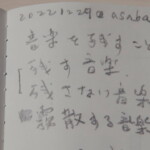 2022.12.29 @ asaba
音楽を残すこと
残す音楽
残さない音楽
霧散する音楽